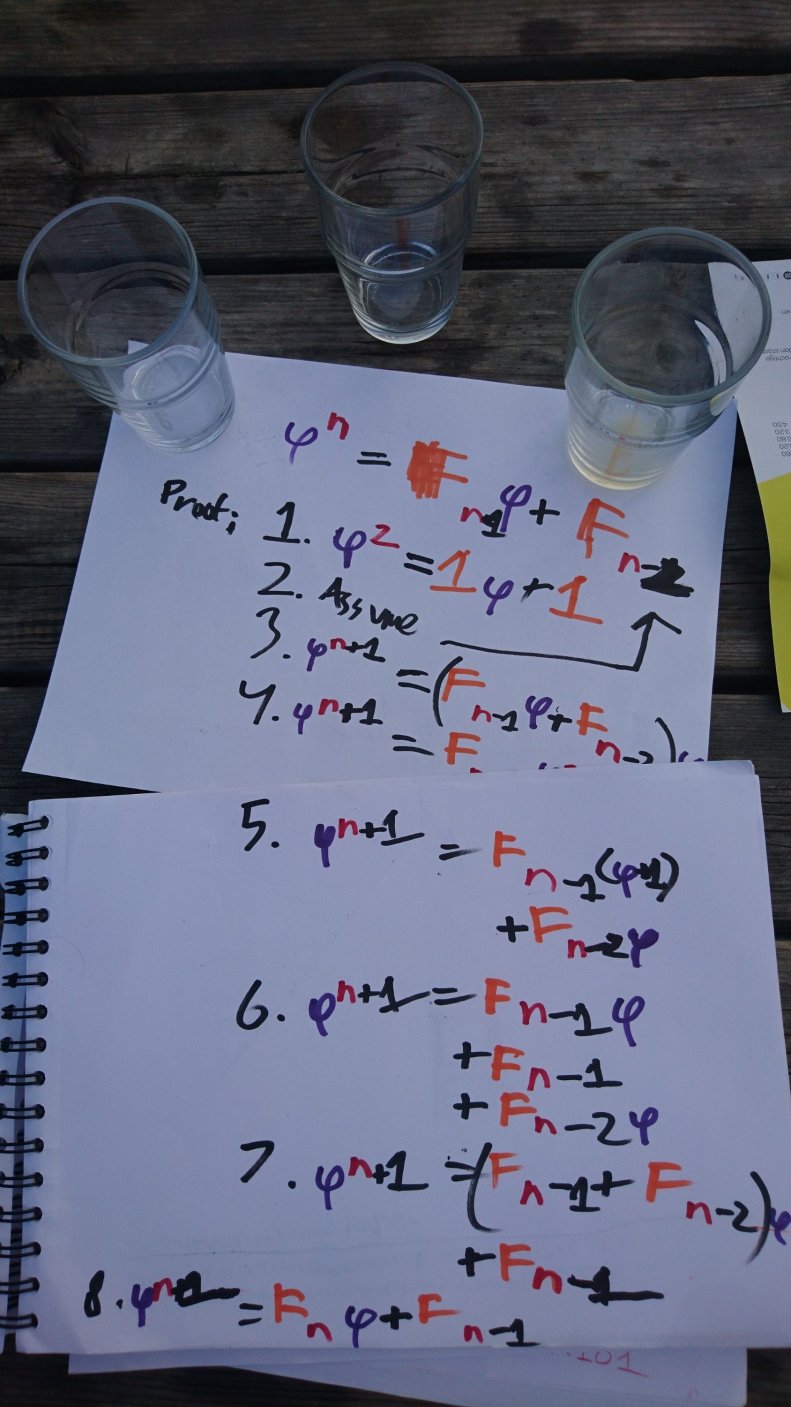 φⁿ = F n-1 φ + F n-2
Proof: 1. φ² = 1φ + 1
2. Assume
3. φⁿ⁺¹ = (F n-1 φ + F n-2)φ
4. φⁿ⁺¹ = F
5. φⁿ⁺¹ = F n-1 (φ+1)
+ F n-2 φ
6. φⁿ⁺¹ = F n-1 φ
+ F n-1
+ F n-2 φ
7. φⁿ⁺¹ = (F n-1 + F n-2)φ
+ F n-1
8. φⁿ⁺¹ = F n φ + F n-1